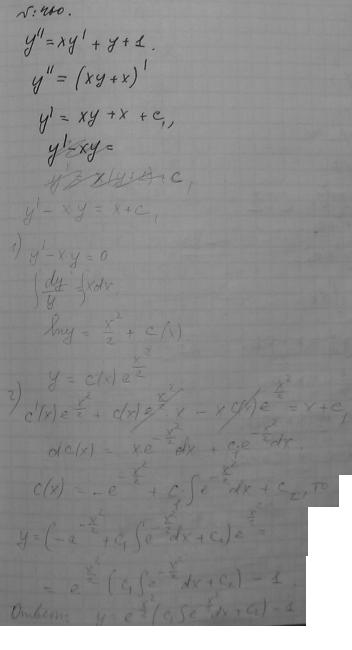 y'' = xy' + y + 1.
y'' = (xy + x)'
y' = xy + x + c₁,
y' - xy =
y' - xy = x + c₁
1) y' - xy = 0
∫ dy/y = ∫ x dx
ln y = x²/2 + c(x)
y = c(x) e^(x²/2)
2) c'(x) e^(x²/2) + c(x) e^(x²/2) x - x c(x) e^(x²/2) = x + c₁
dc(x) = x e^(-x²/2) dx + c₁ e^(-x²/2) dx.
c(x) = -e^(-x²/2) + c₁ ∫ e^(-x²/2) dx + c₂, то
y = (-e^(-x²/2) + c₁ ∫ e^(-x²/2) dx + c₂) e^(x²/2) =
= e^(x²/2) (c₁ ∫ e^(-x²/2) dx + c₂) - 1.
Ответ: y = e^(x²/2) (c₁ ∫ e^(-x²/2) dx + c₂) - 1